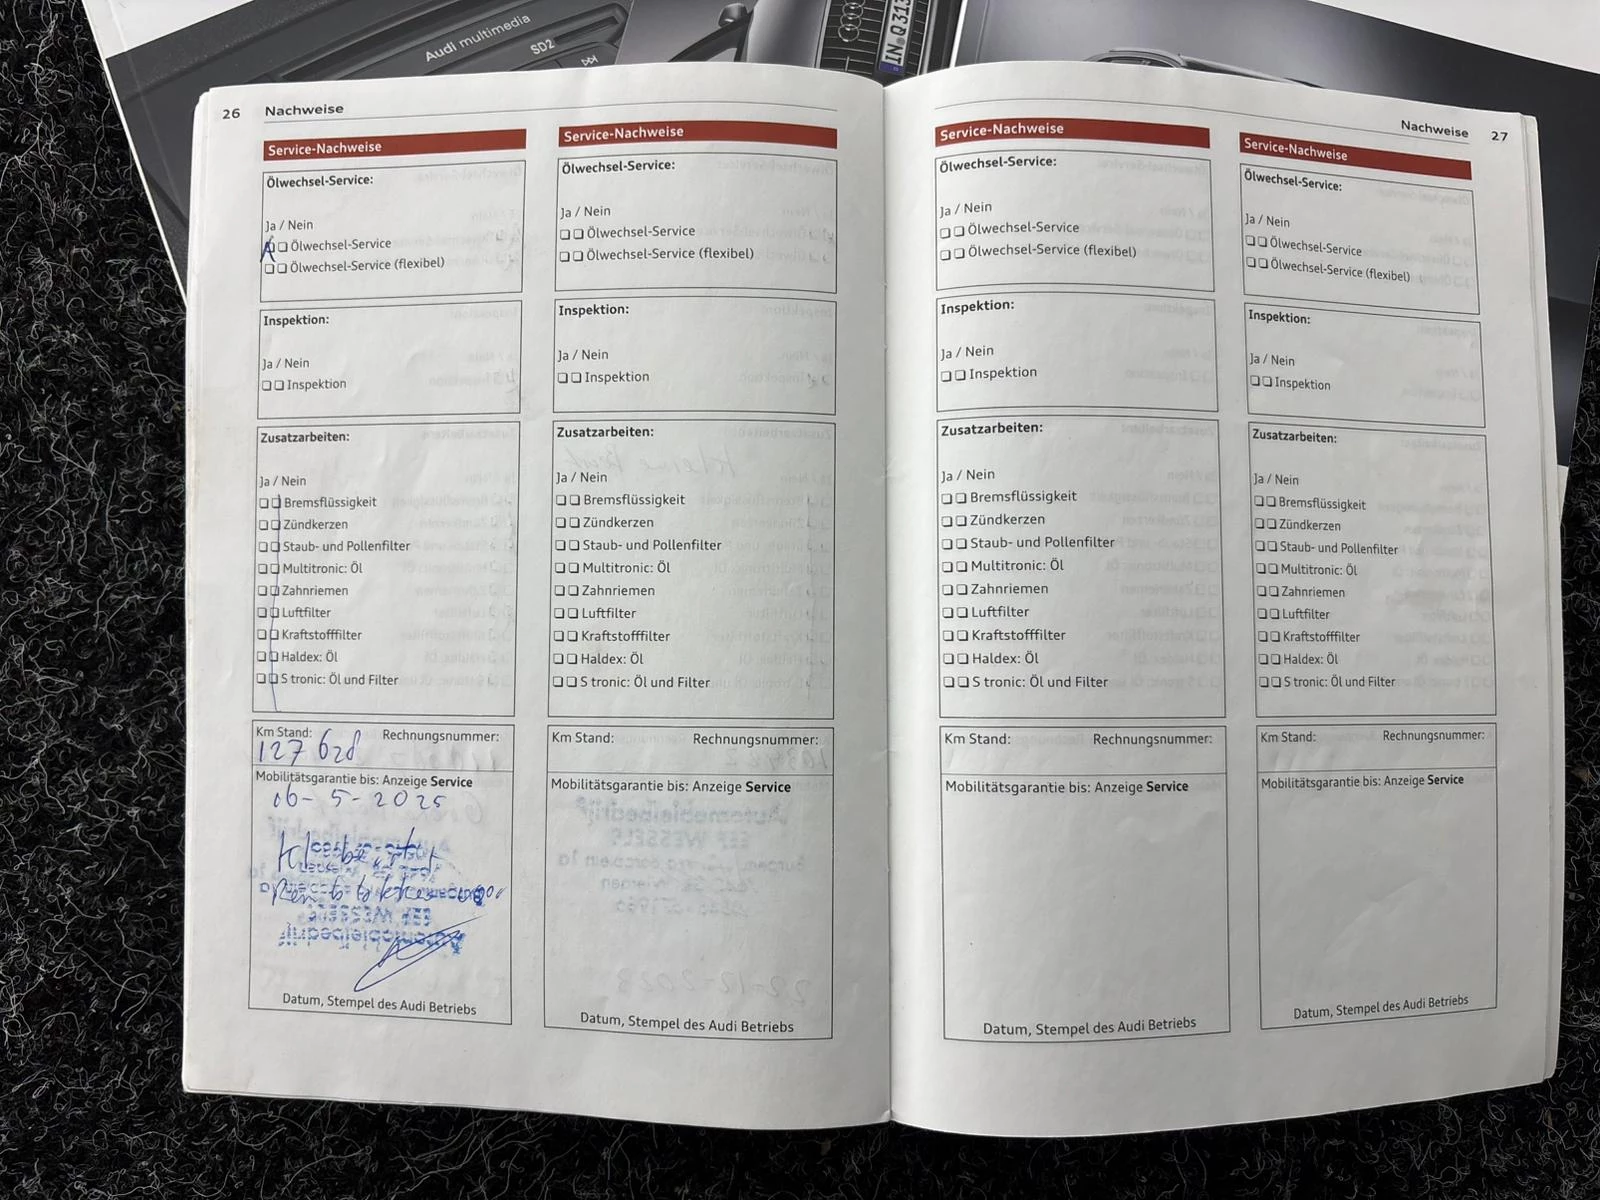 Audi multimedia
SD2
IN Q313
26 Nachweise
Service-Nachweise
Ölwechsel-Service:
Ja / Nein
Ölwechsel-Service
Ölwechsel-Service (flexibel)
Inspektion:
Ja / Nein
Inspektion
Zusatzarbeiten:
Ja / Nein
Bremsflüssigkeit
Zündkerzen
Staub- und Pollenfilter
Multitronic: Öl
Zahnriemen
Luftfilter
Kraftstofffilter
Haldex: Öl
S tronic: Öl und Filter
Km Stand: Rechnungsnummer:
127 628
Mobilitätsgarantie bis: Anzeige Service
06-5-2025
EEF WESSELS
Automobielbedrijf
Datum, Stempel des Audi Betriebs
Service-Nachweise
Ölwechsel-Service:
Ja / Nein
Ölwechsel-Service
Ölwechsel-Service (flexibel)
Inspektion:
Ja / Nein
Inspektion
Zusatzarbeiten:
Ja / Nein
Bremsflüssigkeit
Zündkerzen
Staub- und Pollenfilter
Multitronic: Öl
Zahnriemen
Luftfilter
Kraftstofffilter
Haldex: Öl
S tronic: Öl und Filter
Km Stand: Rechnungsnummer:
Mobilitätsgarantie bis: Anzeige Service
Datum, Stempel des Audi Betriebs
Nachweise 27
Service-Nachweise
Ölwechsel-Service:
Ja / Nein
Ölwechsel-Service
Ölwechsel-Service (flexibel)
Inspektion:
Ja / Nein
Inspektion
Zusatzarbeiten:
Ja / Nein
Bremsflüssigkeit
Zündkerzen
Staub- und Pollenfilter
Multitronic: Öl
Zahnriemen
Luftfilter
Kraftstofffilter
Haldex: Öl
S tronic: Öl und Filter
Km Stand: Rechnungsnummer:
Mobilitätsgarantie bis: Anzeige Service
Datum, Stempel des Audi Betriebs
Service-Nachweise
Ölwechsel-Service:
Ja / Nein
Ölwechsel-Service
Ölwechsel-Service (flexibel)
Inspektion:
Ja / Nein
Inspektion
Zusatzarbeiten:
Ja / Nein
Bremsflüssigkeit
Zündkerzen
Staub- und Pollenfilter
Multitronic: Öl
Zahnriemen
Luftfilter
Kraftstofffilter
Haldex: Öl
S tronic: Öl und Filter
Km Stand: Rechnungsnummer:
Mobilitätsgarantie bis: Anzeige Service
Datum, Stempel des Audi Betriebs